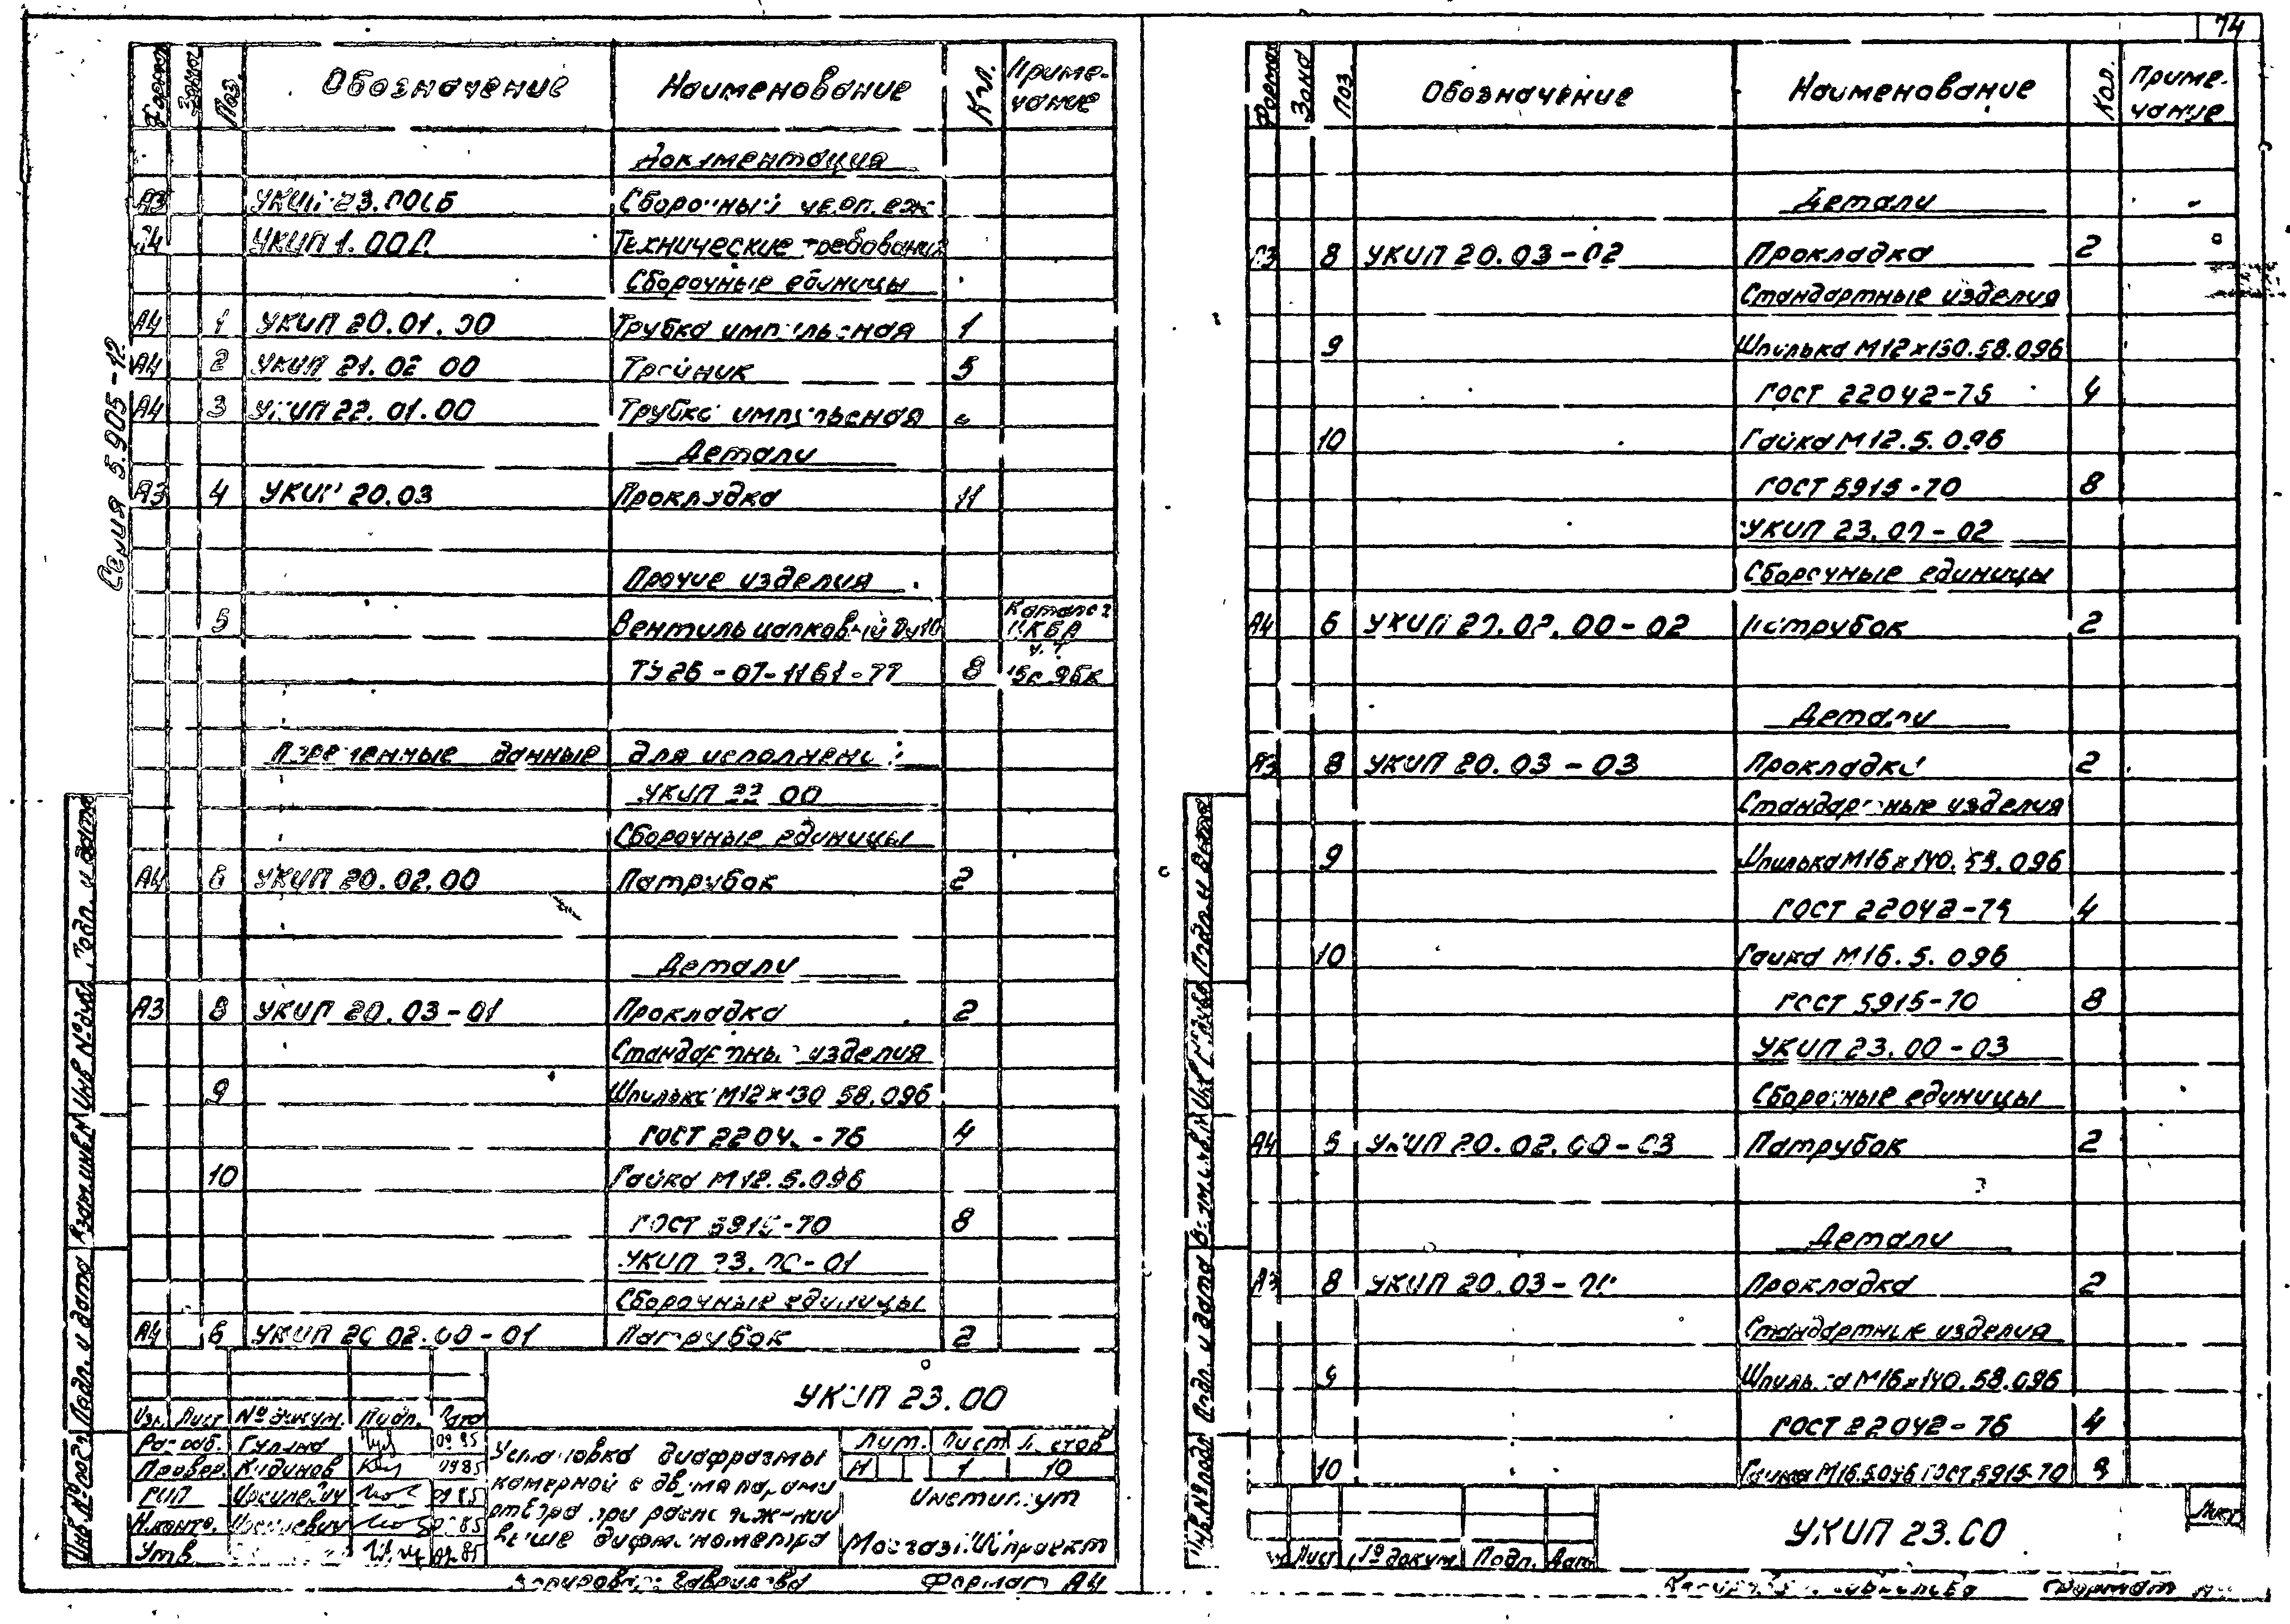 74
Формат Зона Поз. Обозначение Наименование Кол. Приме-
чание
Документация
А3 УКИП 23.00СБ Сборочный чертеж
А4 УКИП 1.00Д Технические требования
Сборочные единицы
А4 1 УКИП 20.01.00 Трубка импульсная 1
А4 2 УКИП 21.02 00 Тройник 5
А4 3 УКИП 22.01.00 Трубка импульсная
Детали
А3 4 УКИП 20.03 Прокладка 11
Прочие изделия
5 Вентиль цапковый Ду10 Каталог
ЦКБА
ч. 1
ТУ 26-07-1161-77 8 15с 9бк
Переменные данные для исполнений:
УКИП 23 00
Сборочные единицы
А4 6 УКИП 20.02.00 Патрубок 2
Детали
А3 8 УКИП 20.03-01 Прокладка 2
Стандартные изделия
9 Шпилька М12×130 58.096
ГОСТ 22042-76 4
10 Гайка М12.5.096
ГОСТ 5915-70 8
УКИП 23.00-01
Сборочные единицы
А4 6 УКИП 20 02.00-01 Патрубок 2
Серия 5.905-12
Инв.№ подл. Подл. и дата Взам.инв.№ Инв №дубл. Подл. и дата
УКИП 23.00
Изм. Лист № докум. Подп. Дата
Разраб. 09 85
Провер. Кидинов 09 85
ГИП Иосилевич 09 85
Н.контр. Иосилевич 09 85
Утв. 09.85
Установка диафрагмы
камерной с двумя парами
отбора при расположении
выше дифманометра
Лит. Лист Листов
И 1 10
Институт
МосгазНИИпроект
Копировал: Гаврилова Формат А4
Формат Зона Поз Обозначение Наименование Кол. Приме-
чание
Детали
А3 8 УКИП 20.03-02 Прокладка 2
Стандартные изделия
9 Шпилька М12×130.58.096
ГОСТ 22042-76 4
10 Гайка М12.5.096
ГОСТ 5915-70 8
УКИП 23.00-02
Сборочные единицы
А4 6 УКИП 20.02.00-02 Патрубок 2
Детали
А3 8 УКИП 20.03-03 Прокладка 2
Стандартные изделия
9 Шпилька М16×140.58.096
ГОСТ 22042-76 4
10 Гайка М16.5.096
ГОСТ 5915-70 8
УКИП 23.00-03
Сборочные единицы
А4 6 УКИП 20.02.00-03 Патрубок 2
Детали
А3 8 УКИП 20.03- Прокладка 2
Стандартные изделия
9 Шпилька М16×140.58.096
ГОСТ 22042-76 4
10 Гайка М16.5.096 ГОСТ 5915-70 8
Инв.№ подл Подл. и дата Взам.инв.№ Инв №дубл Подл. и дата
УКИП 23.00
Лист
Изм Лист № докум. Подп. Дата
Копировал: Гаврилова Формат А4